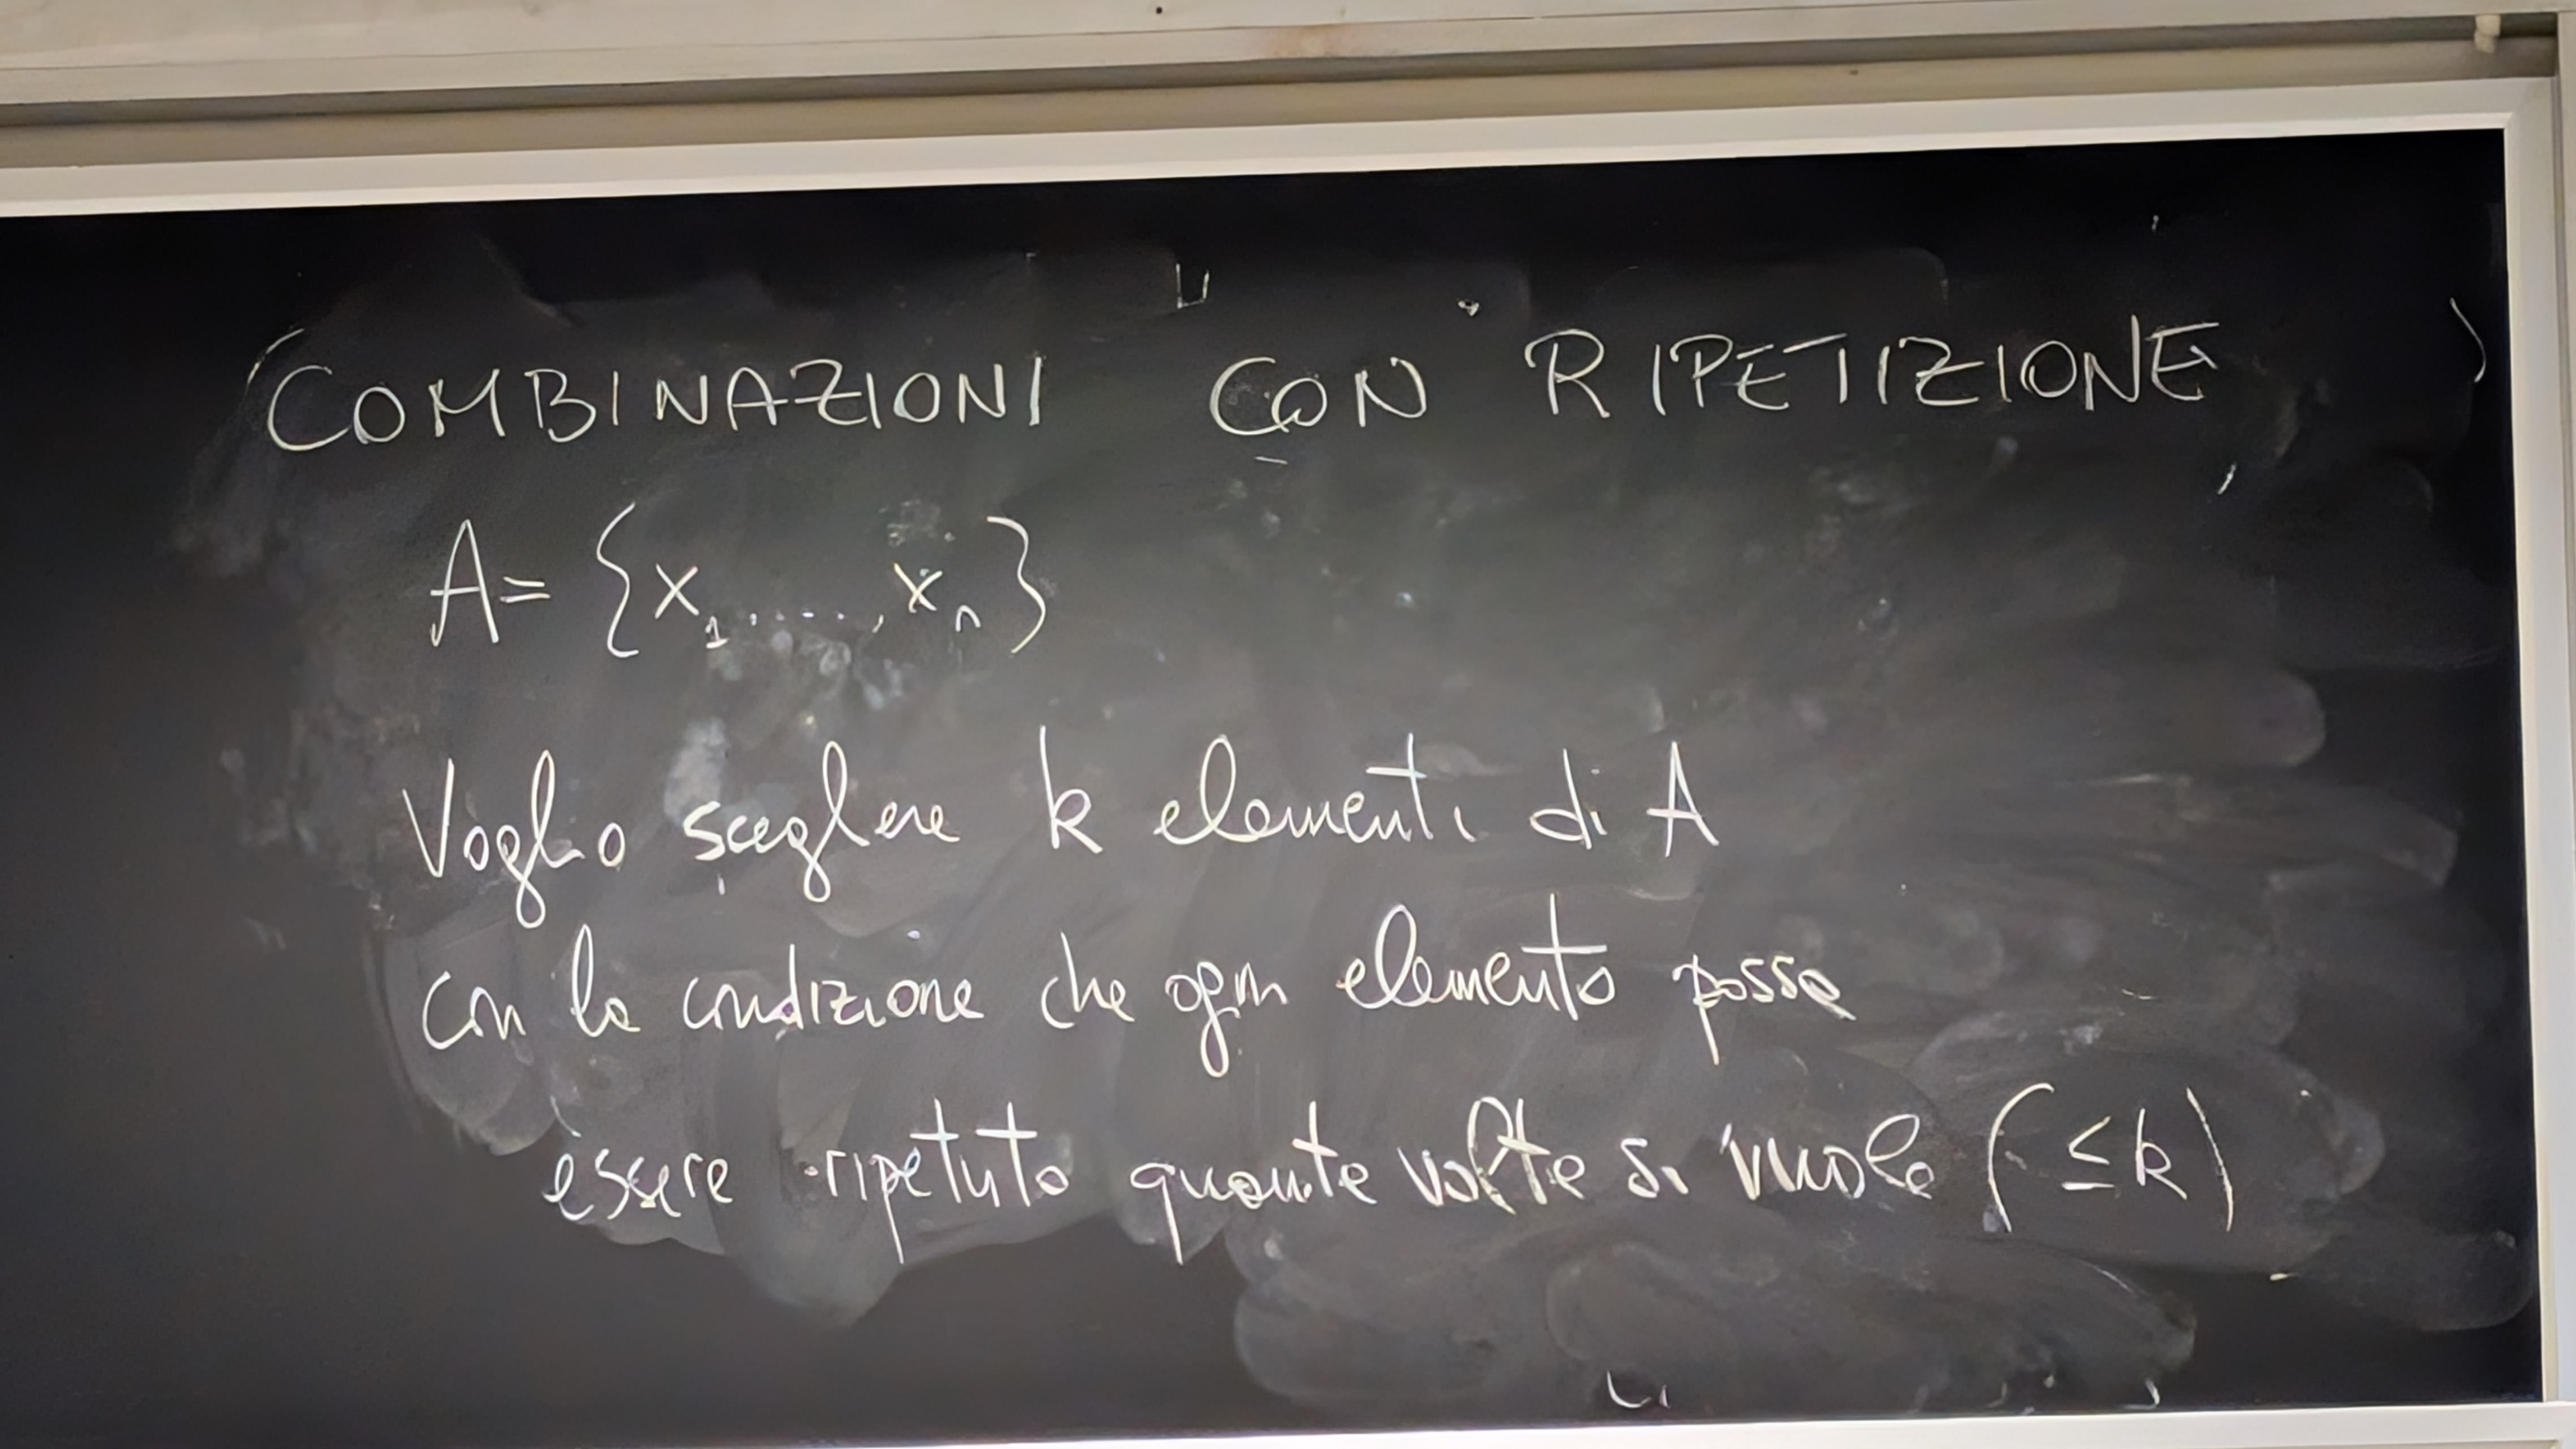 COMBINAZIONI CON RIPETIZIONE
A= {x₁....., xₙ}
Voglio scegliere k elementi di A
con la condizione che ogni elemento possa
essere ripetuto quante volte si vuole (≤k)